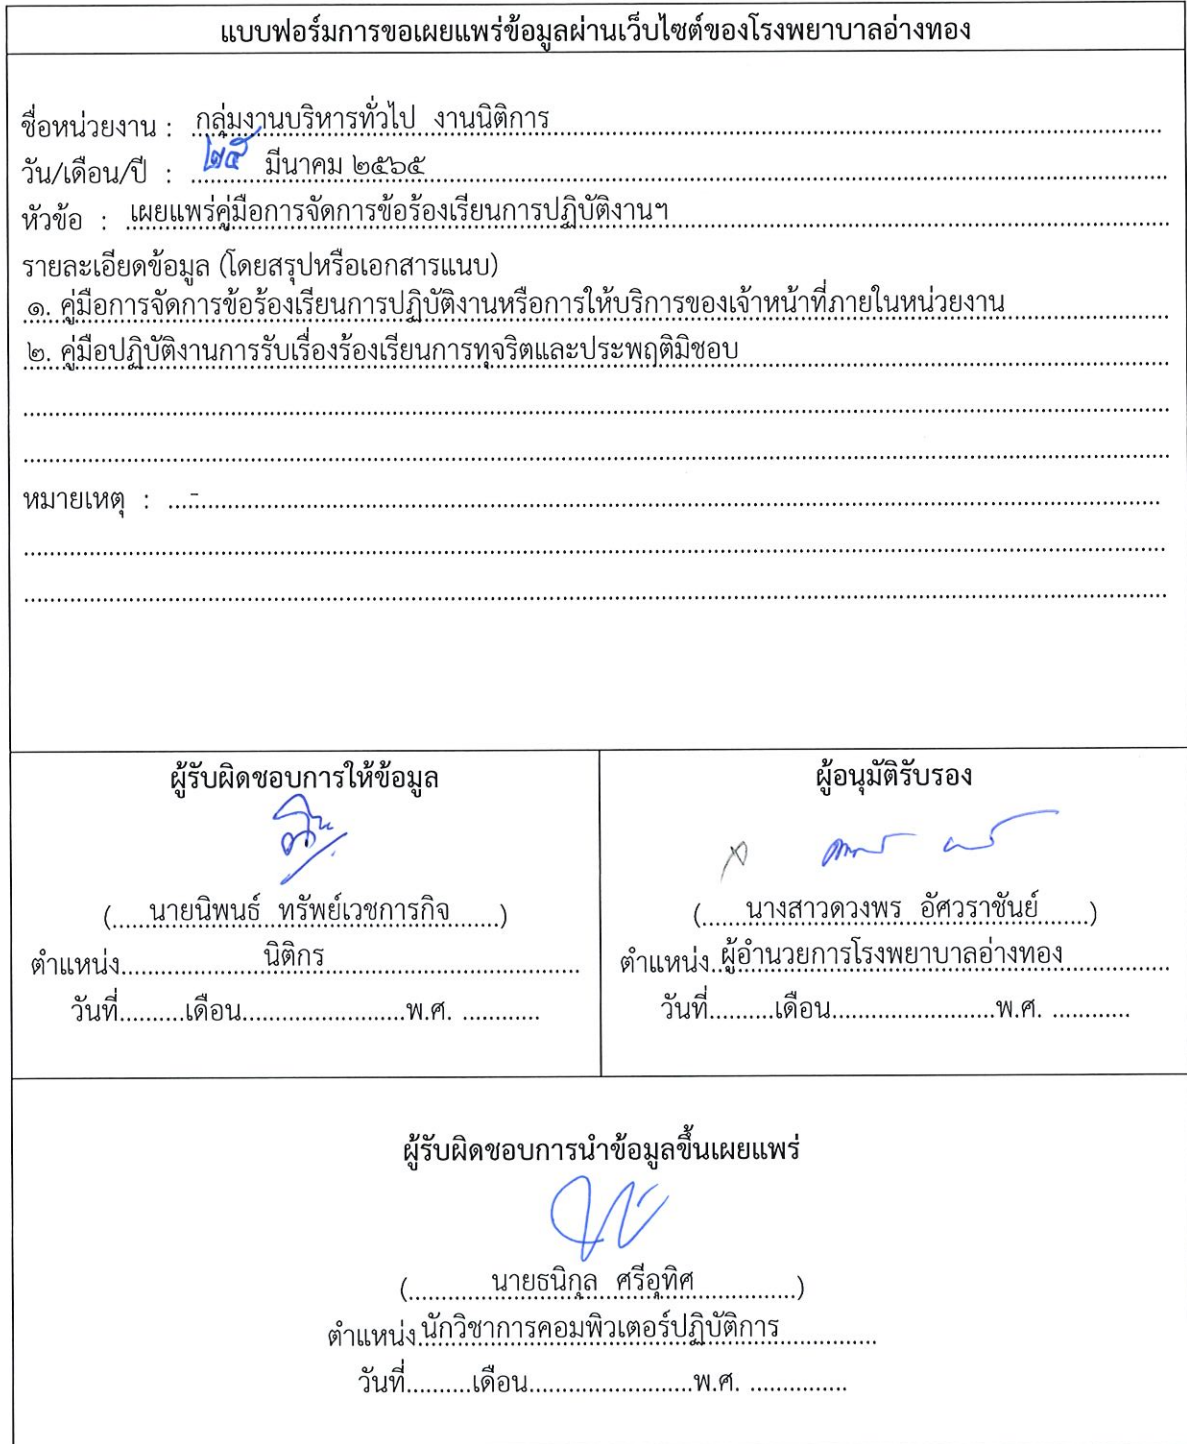 แบบฟอร์มการขอเผยแพร่ข้อมูลผ่านเว็บไซต์ของโรงพยาบาลอ่างทอง
ชื่อหน่วยงาน : กลุ่มงานบริหารทั่วไป งานนิติการ
วัน/เดือน/ปี : ๒๕ มีนาคม ๒๕๖๕
หัวข้อ : เผยแพร่คู่มือการจัดการข้อร้องเรียนการปฏิบัติงานฯ
รายละเอียดข้อมูล (โดยสรุปหรือเอกสารแนบ)
๑. คู่มือการจัดการข้อร้องเรียนการปฏิบัติงานหรือการให้บริการของเจ้าหน้าที่ภายในหน่วยงาน
๒. คู่มือปฏิบัติงานการรับเรื่องร้องเรียนการทุจริตและประพฤติมิชอบ
หมายเหตุ : -
ผู้รับผิดชอบการให้ข้อมูล
(.....นายนิพนธ์ ทรัพย์เวชการกิจ.....)
ตำแหน่ง.....นิติกร.....
วันที่..........เดือน.........................พ.ศ. ............
ผู้อนุมัติรับรอง
(.....นางสาวดวงพร อัศวราชันย์.....)
ตำแหน่ง.ผู้อำนวยการโรงพยาบาลอ่างทอง.....
วันที่..........เดือน.........................พ.ศ. ............
ผู้รับผิดชอบการนำข้อมูลขึ้นเผยแพร่
(.....นายธนิกุล ศรีอุทิศ.....)
ตำแหน่ง.นักวิชาการคอมพิวเตอร์ปฏิบัติการ.....
วันที่..........เดือน.........................พ.ศ. ...............